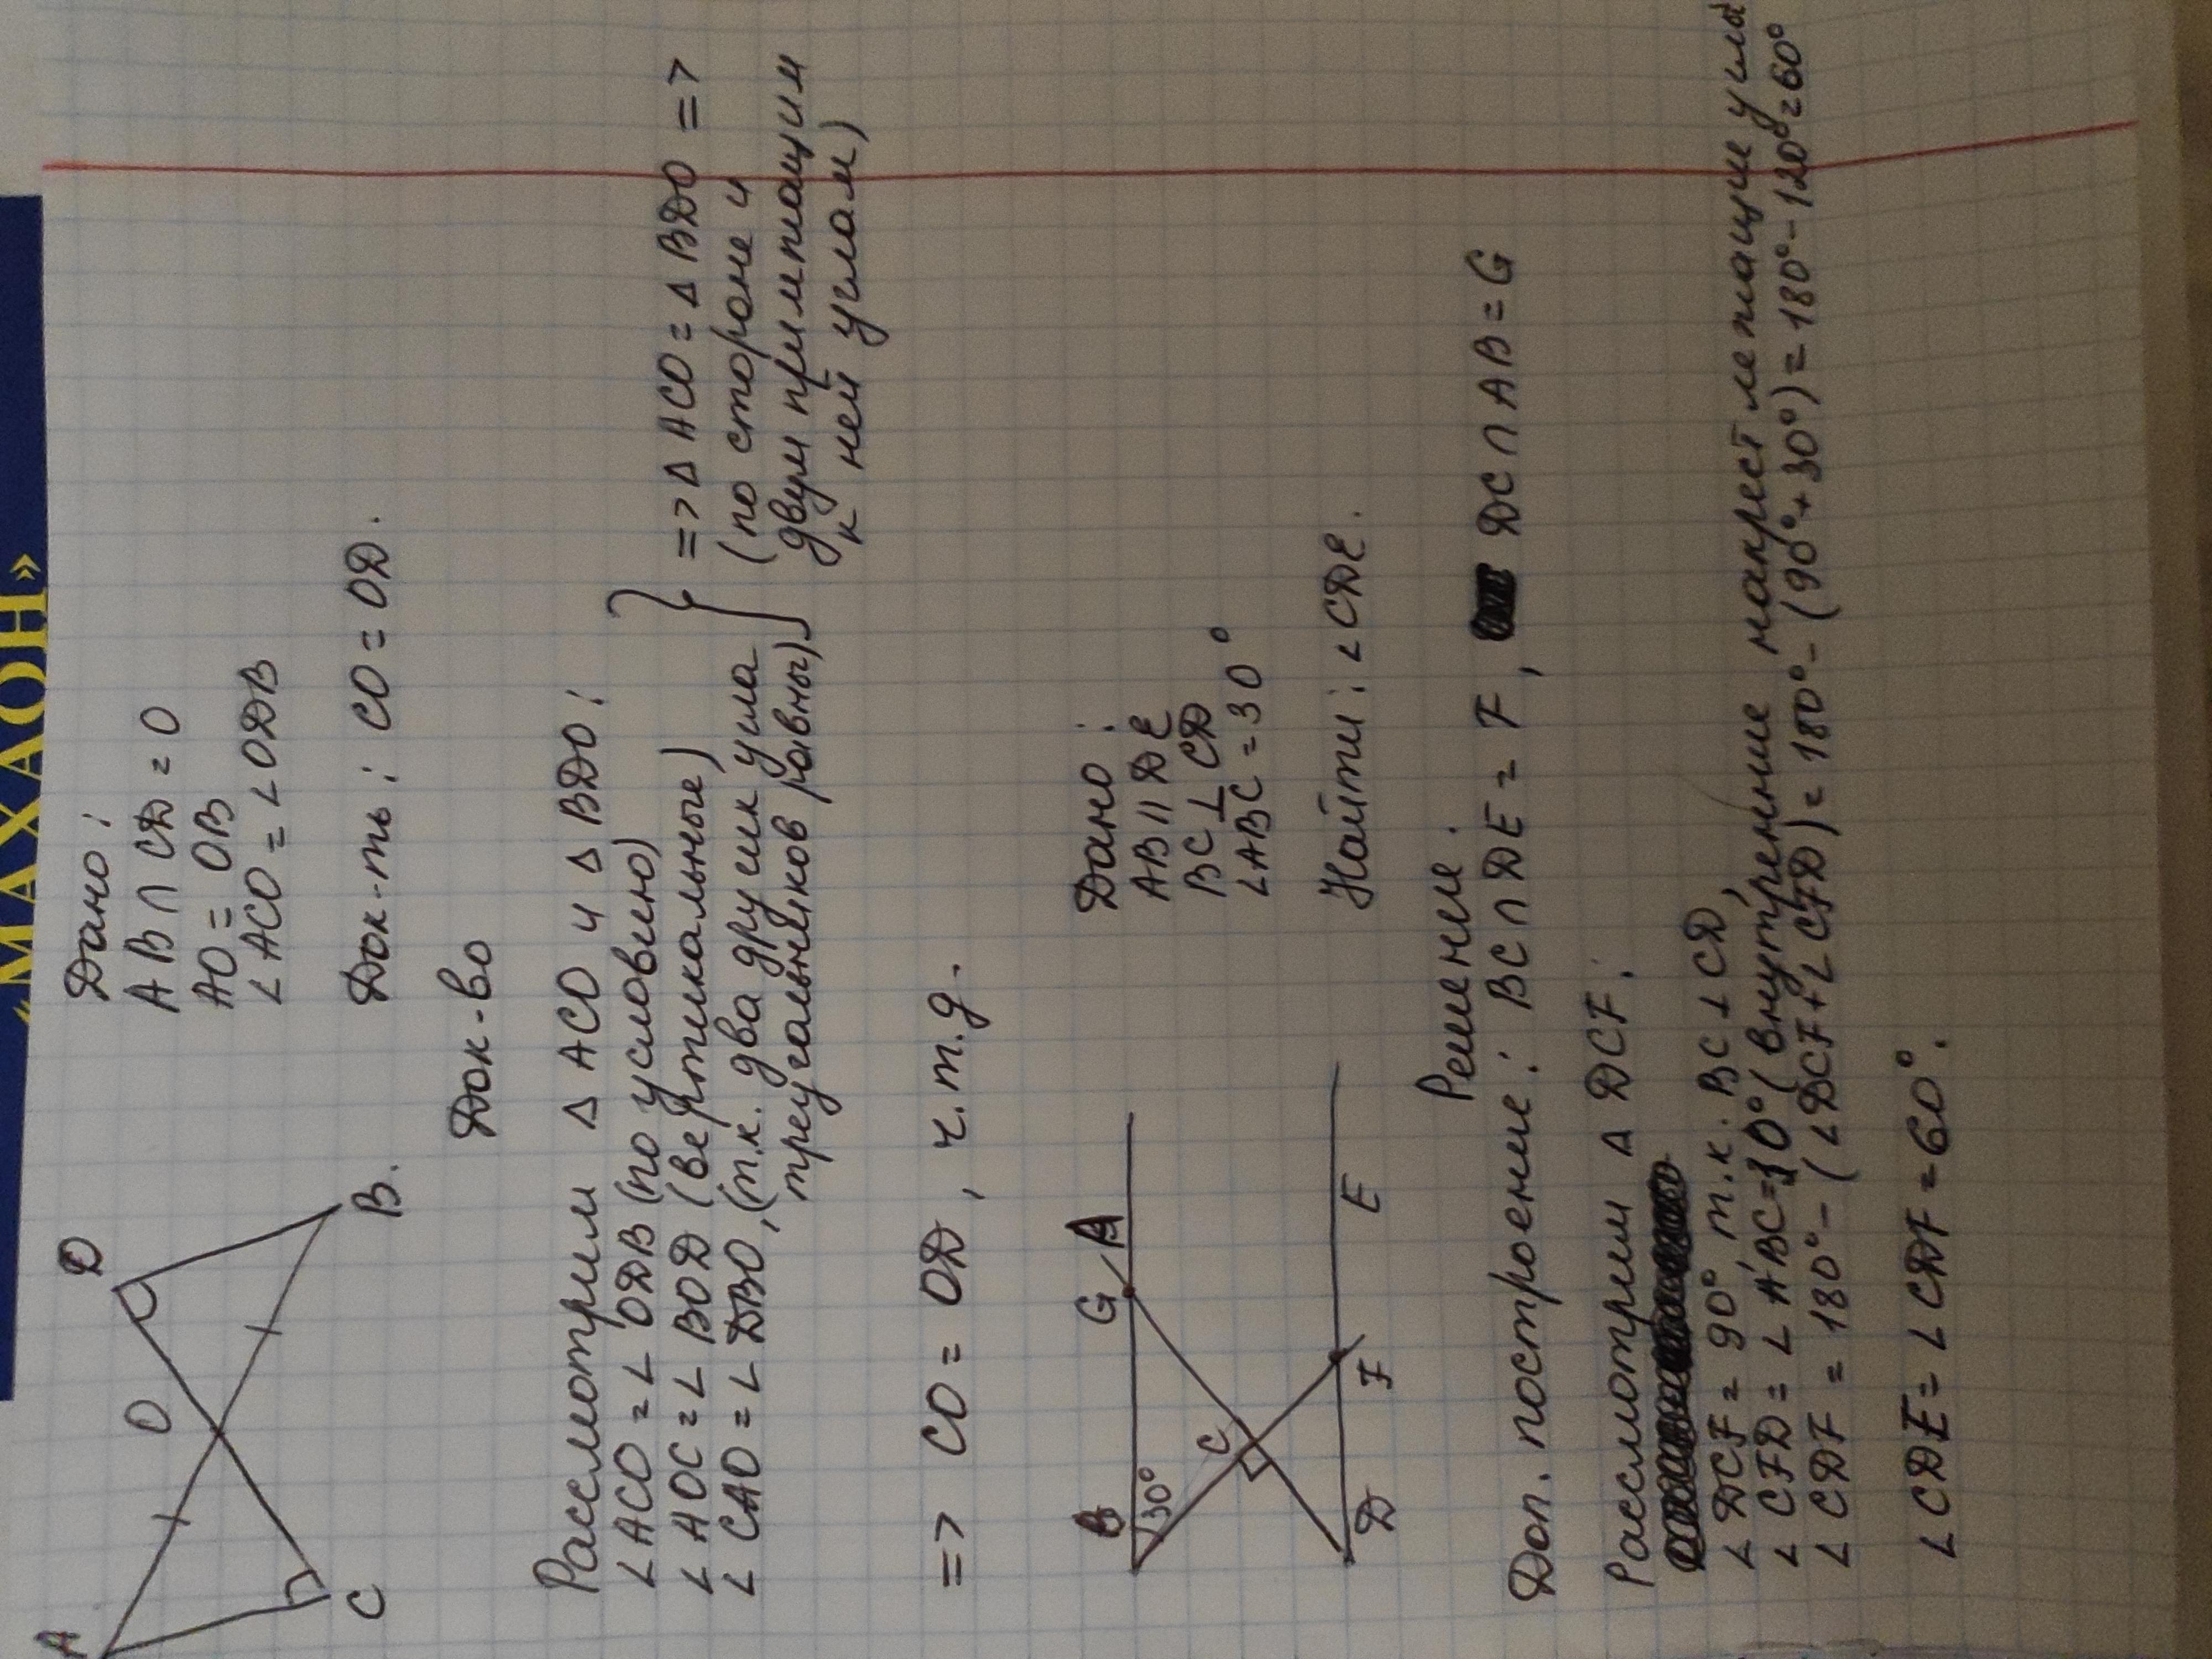 «МАХАОН»
A
O
D
C
B.
Дано:
AB ∩ CD = O
AO = OB
∠ACO = ∠ODB
Док-ть: CO = OD.
Док-во
Рассмотрим Δ ACO и Δ BDO:
∠ACO = ∠ODB (по условию)
∠AOC = ∠BOD (вертикальные)
∠CAO = ∠DBO, (т.к. два других угла
треугольников равны)
=> Δ ACO = Δ BDO =>
(по стороне и
двум прилежащим
к ней углам)
=> CO = OD, ч.т.д.
B
G
A
30°
C
D
F
E
Дано:
AB || DE
BC ⊥ CD
∠ABC = 30°
Найти: ∠CDE.
Решение.
Доп. построение: BC ∩ DE = F, DC ∩ AB = G
Рассмотрим Δ DCF:
∠DCF = 90°, т.к. BC ⊥ CD,
∠CFD = ∠ABC = 30° (внутренние накрест лежащие углы
∠CDF = 180° - (∠DCF + ∠CFD) = 180° - (90° + 30°) = 180° - 120° = 60°
∠CDE = ∠CDF = 60°.